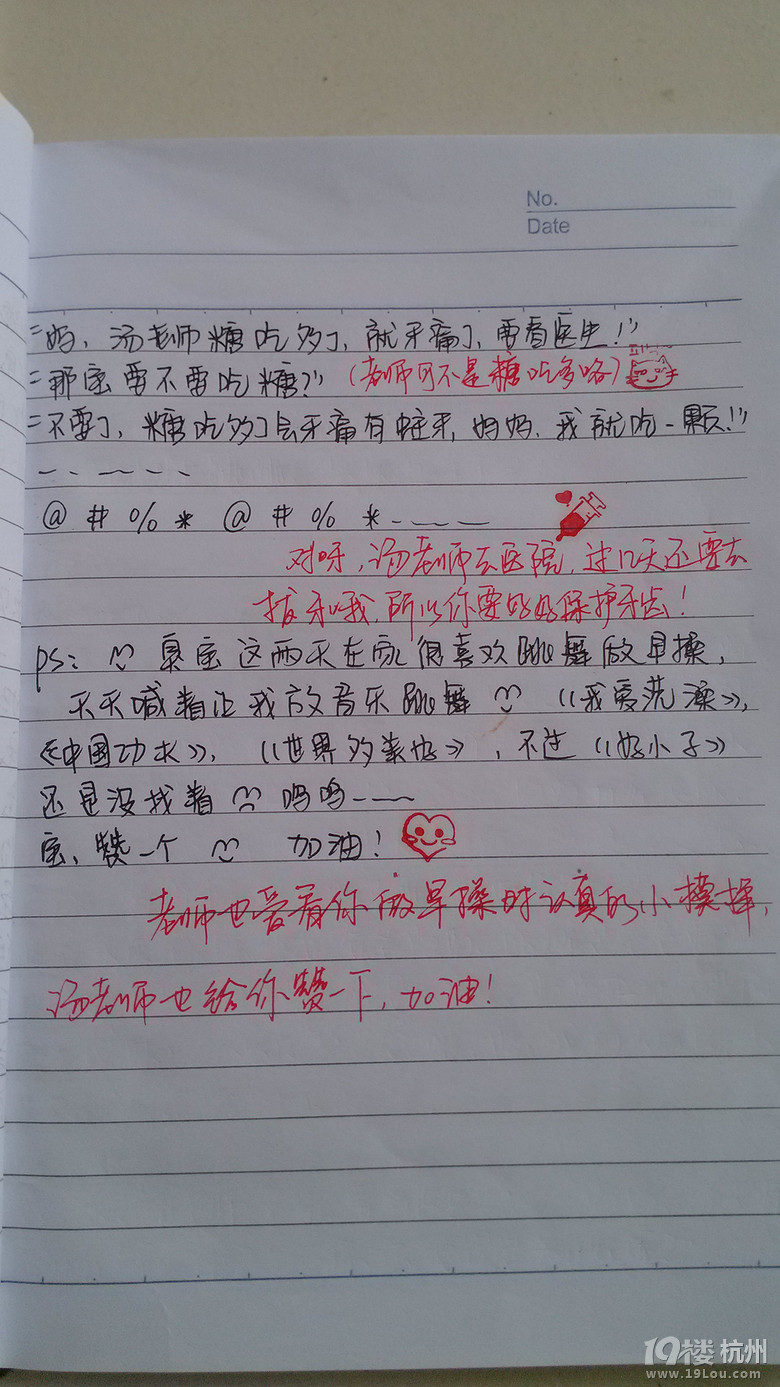 No.
Date
"妈,汤老师糖吃多了,就牙痛了,要看医生!"
"那宝要不要吃糖?" (老师可不是糖吃多咯)
"不要了,糖吃多了会牙痛有蛀牙,妈妈,我就吃一颗!"
@ # % * @ # % *
对呀,汤老师去医院,过几天还要去
拔牙哦,所以你要好好保护牙齿!
ps: 宝这两天在家很喜欢跳舞做早操,
天天喊着让我放音乐跳舞 《我爱洗澡》,
《中国功夫》,《世界多美好》,不过《好小子》
还是没找着 呜呜
宝,赞一个 加油!
老师也爱看你做早操时认真的小模样,
汤老师也给你赞一下,加油!
19楼 杭州
www.19Lou.com